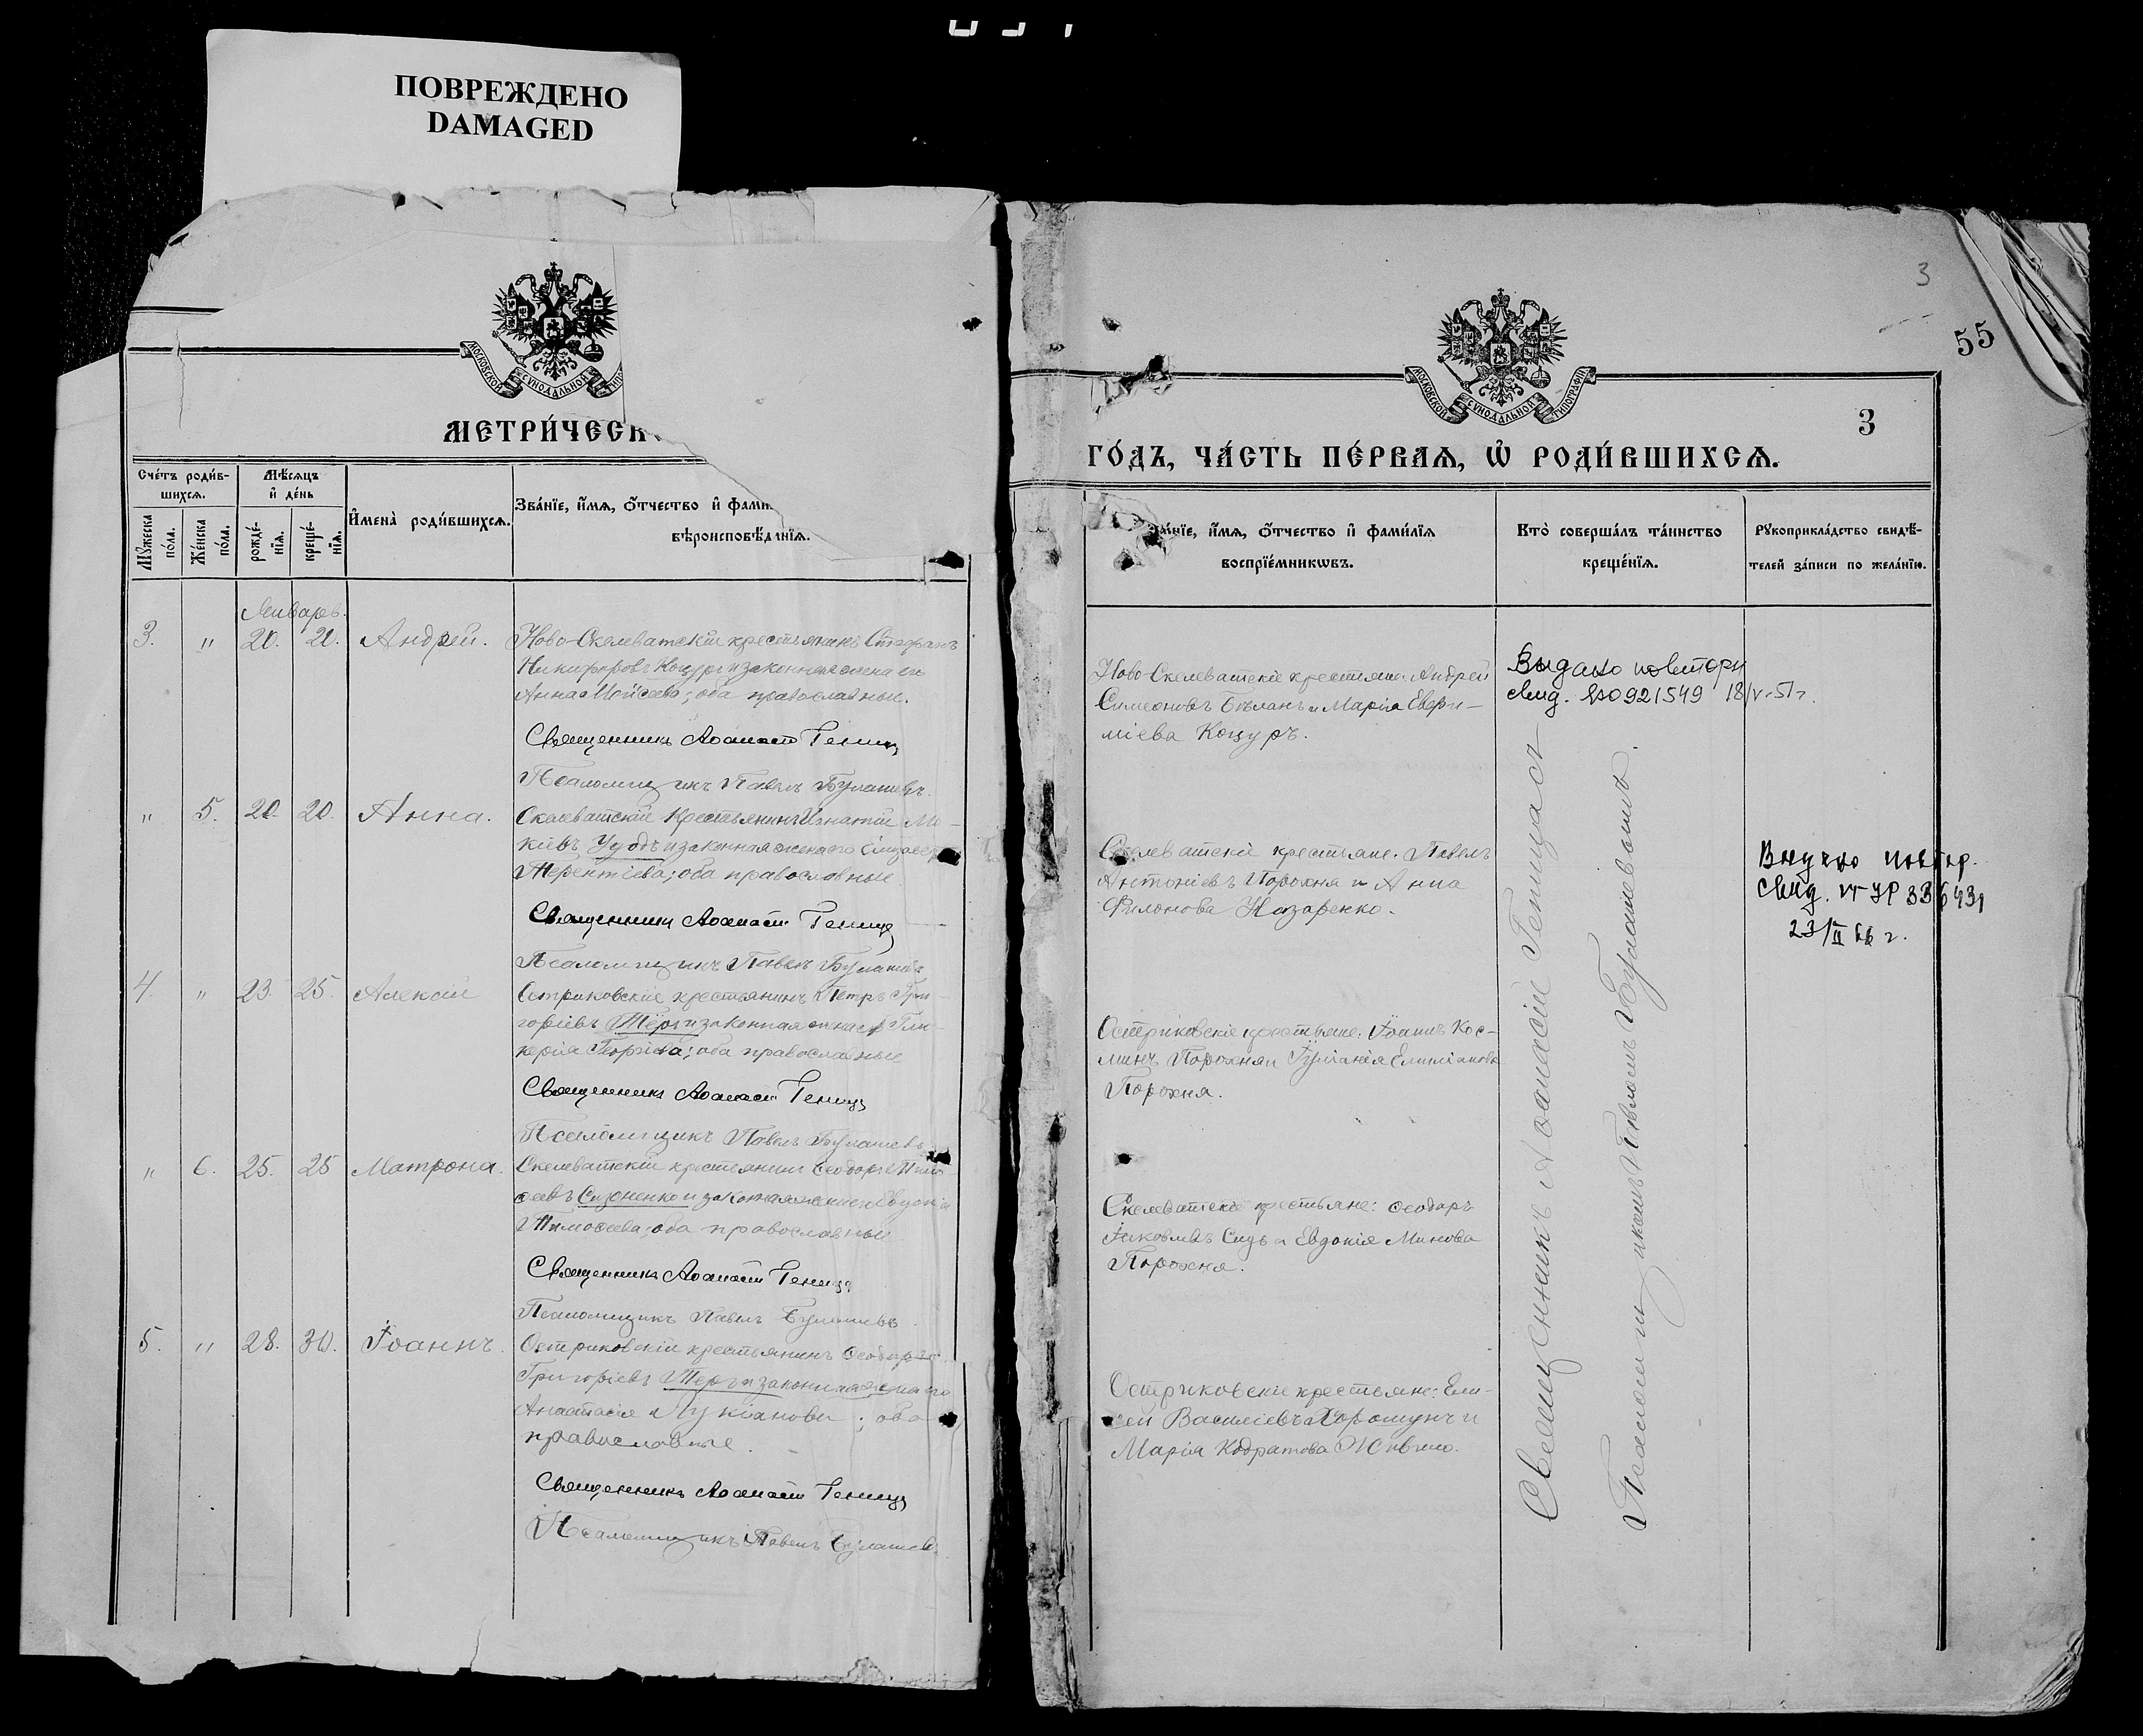 ПОВРЕЖДЕНО
DAMAGED
МОСКОВСКОЙ СѴНОДАЛЬНОЙ ТИПО
МЕТРИ́ЧЕСК
Сче́тъ роди́в-
шихсѧ.
Мѣ́сѧцъ
и҆ де́нь
Мꙋ́жеска
по́ла.
Же́нска
по́ла.
рожде́-
нїѧ.
креще́-
нїѧ.
И҆мена̀ роди́вшихсѧ.
Зва́нїе, и҆́мѧ, ѻ҆́тчество и҆ фами
вѣроисповѣ́данїѧ.
Январь.
3. " 20. 20. Андрей.
Ново-Скелеватскій крестьянинъ Стефанъ
Никифоровъ Коцуръ и законная жена его
Анна Моисеева; оба православные.
Священникъ Аѳанасій Геница
Псаломщикъ Павелъ Булашевъ.
" 5. 20. 20. Анна.
Скелеватскій крестьянинъ Игнатій Мо-
кіевъ и законная жена его
Терентіева; оба православные
Священникъ Аѳанасій Геница
Псаломщикъ Павелъ Булашевъ
4. " 23. 25. Алексій
Остриковскіе крестьянинъ Петръ Гри-
горіевъ и законная жена Гли-
керія Георгіева; оба православные
Священникъ Аѳанасій Геница
Псаломщикъ Павелъ Булашевъ
" 6. 25. 25 Матрона.
Скелеватскій крестьянинъ Ѳеодоръ
Сизоненко и законная жена Евдокія
Тимоѳеева; оба православные
Священникъ Аѳанасій Геница
Псаломщикъ Павелъ Булашевъ.
5. " 28. 30. Іоаннъ.
Остриковскій крестьянинъ Ѳеодоръ
Григоріевъ и законная жена его
Анастасія Лукіанова; оба
православные.
Священникъ Аѳанасій Геница
Псаломщикъ Павелъ Булашев
3
55
МОСКОВСКОЙ СѴНОДАЛЬНОЙ ТИПОГРАФІИ
3
ГО́ДЪ, ЧА́СТЬ ПЕ́РВАѦ, Ѡ҆ РОДИ́ВШИХСѦ.
а́нїе, и҆́мѧ, ѻ҆́тчество и҆ фами́лїѧ
воспрїе́мникѡвъ.
Кто̀ соверша́лъ та́инство
креще́нїѧ.
Рꙋкоприкла́дство свидѣ́-
телей за́писи по жела́нїю.
Ново-Скелеватскіе крестьяне: Андрей
Симеоновъ Бѣланъ и Марія Евфи-
міева Коцуръ.
Выдано повторн
свид. 921549 18/V-51г.
Скелеватскіе крестьяне: Павелъ
Антоніевъ Порохня и Анна
Филонова Назаренко.
Выдано повтор.
свид. УР 336431
23/II 66 г.
Остриковскіе крестьяне: Іоаннъ Кос-
минъ Порохня и Іуліанія Емиліанова
Порохня.
Скелеватскіе крестьяне: Ѳеодоръ
Іаковлевъ Сидъ и Евдокія Минова
Порохня.
Остриковскіе крестьяне: Ели-
сей Василіевъ Хорошунъ и
Марія Кодратова
Священникъ Аѳанасій Геница съ
Псаломщикомъ Павломъ Булашевымъ.